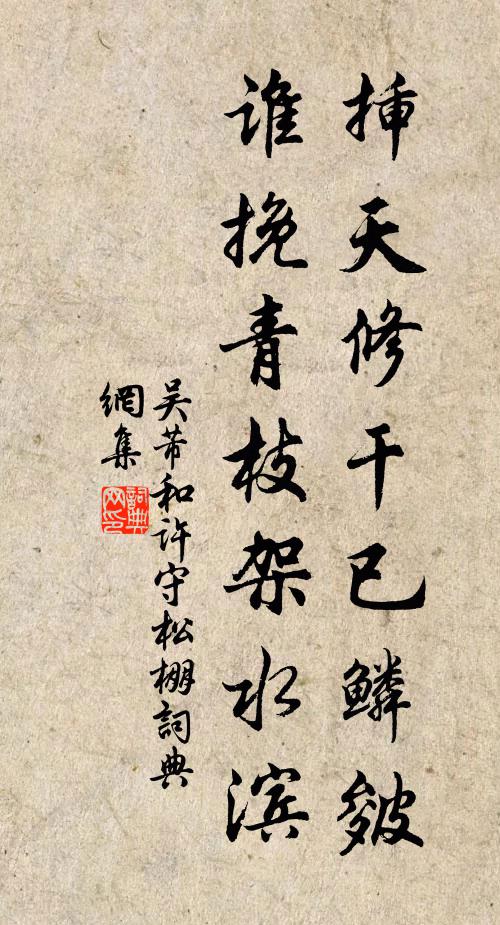 揷天修干已鳞皴
谁挽青枝架水滨
吴芾和许守松棚詞典
網集
詞典网印